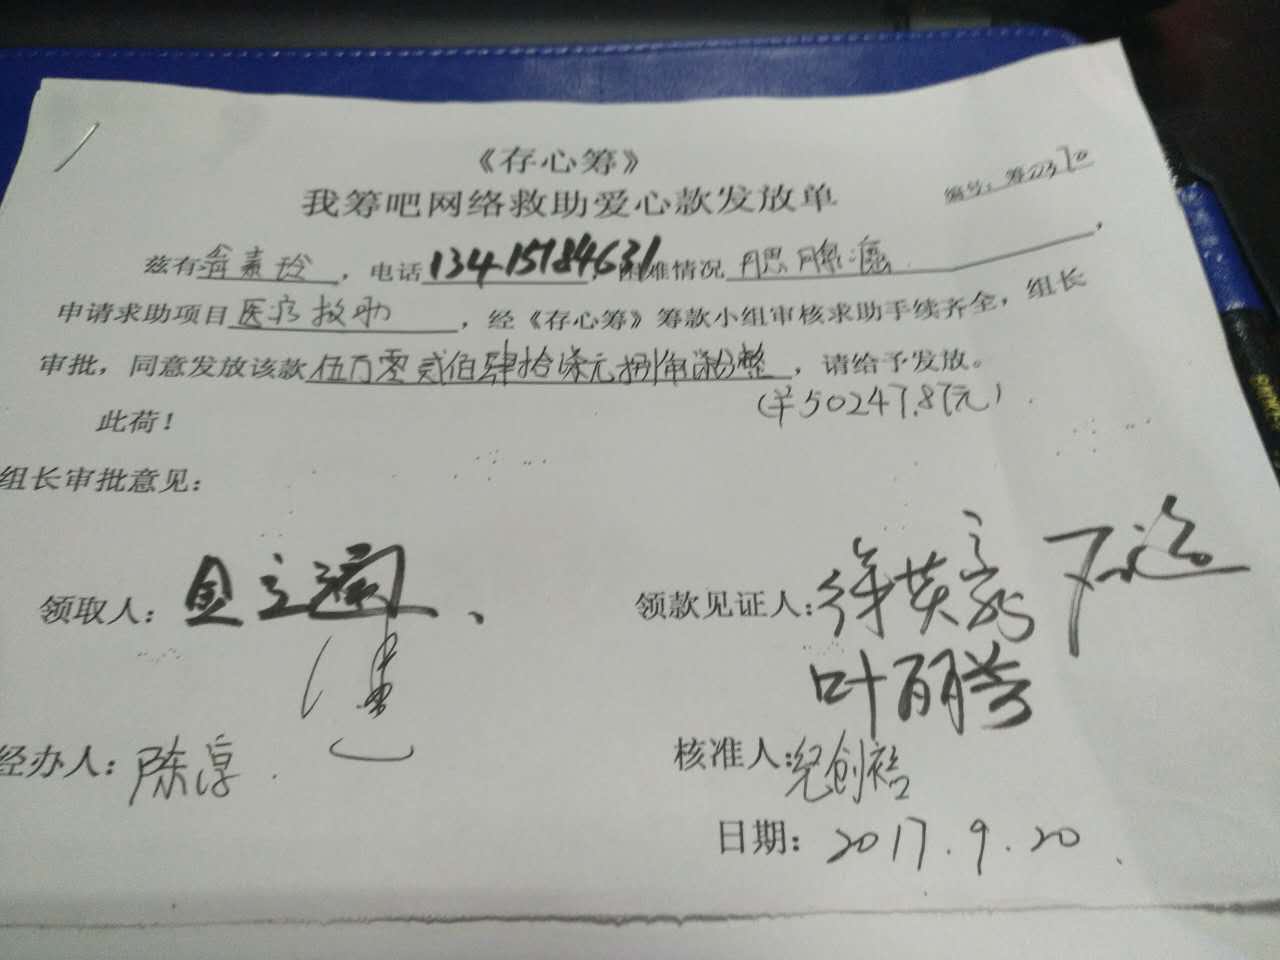 《存心筹》
我筹吧网络救助爱心款发放单
编号：筹0370
兹有翁素玲，电话13415784631困难情况腮腺癌，
申请求助项目医疗救助，经《存心筹》筹款小组审核求助手续齐全，组长
审批，同意发放该款伍万零贰佰肆拾柒元捌角柒分整，请给予发放。
(¥50247.87元)
此荷！
组长审批意见：
领取人：
领款见证人：徐英豪
叶丽
经办人：陈淳
核准人：纪创裕
日期：2017.9.20